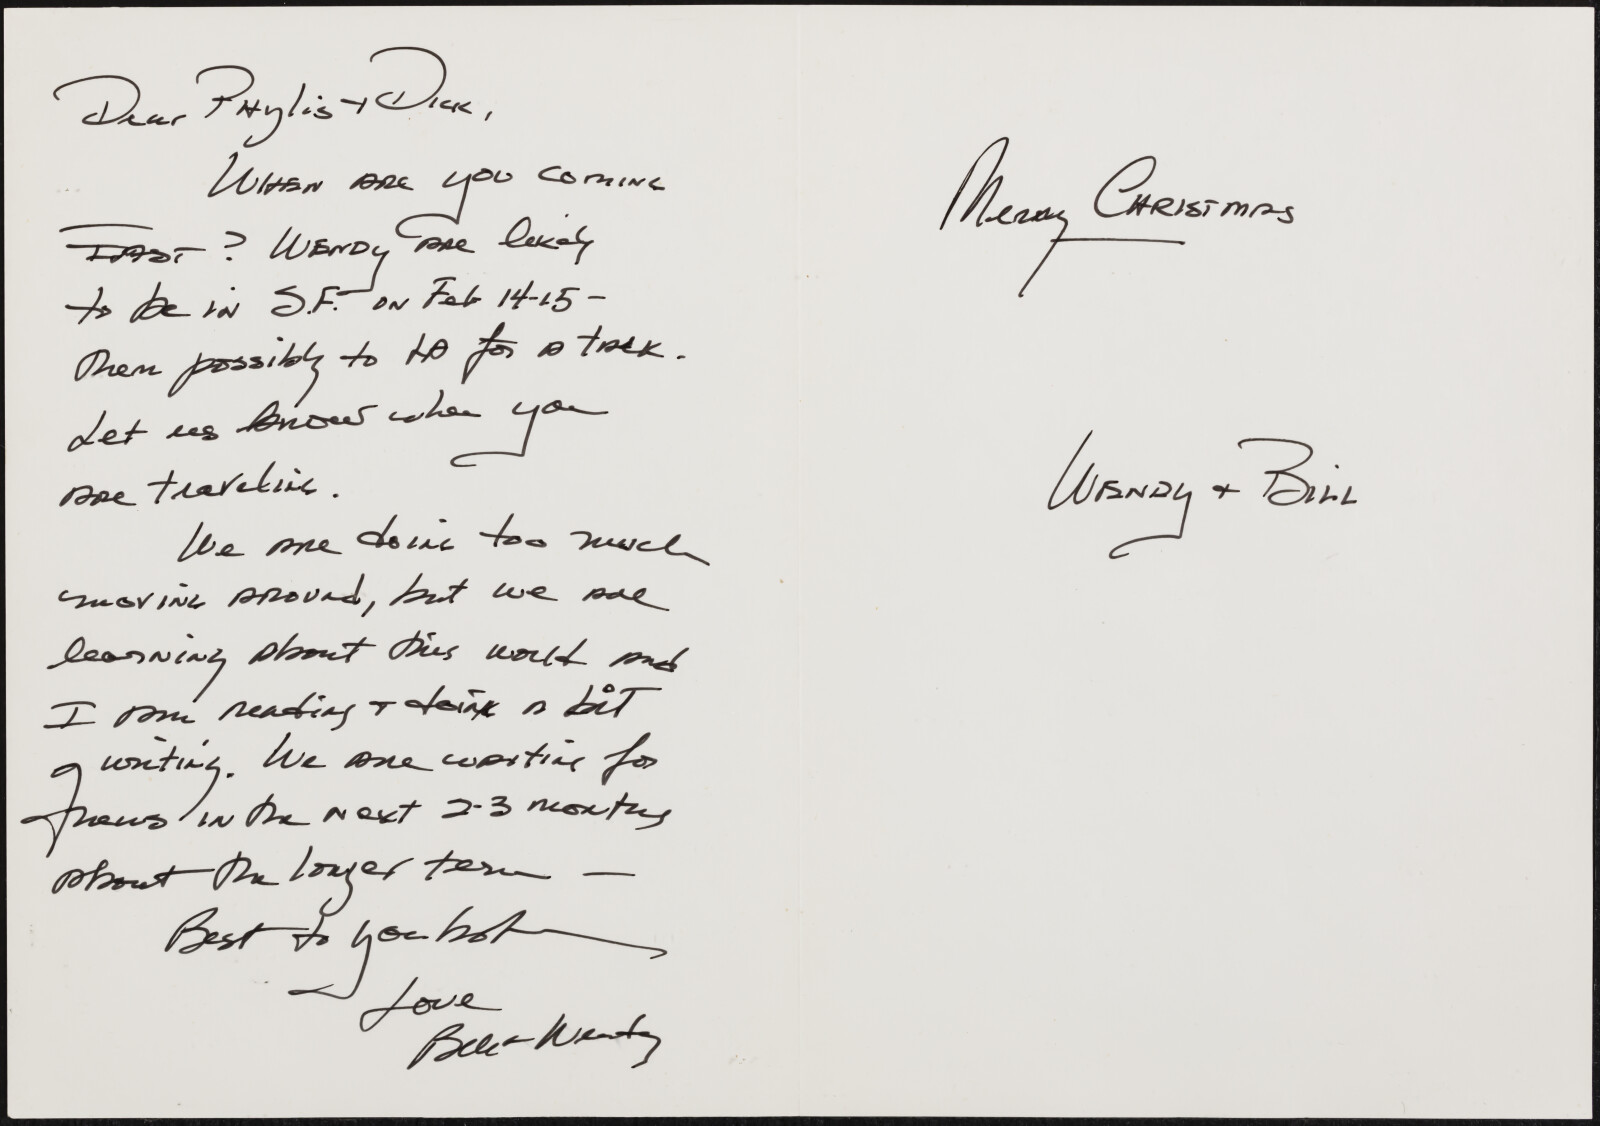 Dear Phylis + Dick,
When are you coming
East? Wendy are likely
to be in S.F. on Feb 14-15 -
then possibly to LA for a talk.
Let us know when you
are traveling.
We are doing too much
moving around, but we are
learning about this world and
I am reading + doing a bit
of writing. We are waiting for
news in the next 2-3 months
about the longer term —
Best to you both
Love
Bill + Wendy
Merry Christmas
Wendy + Bill